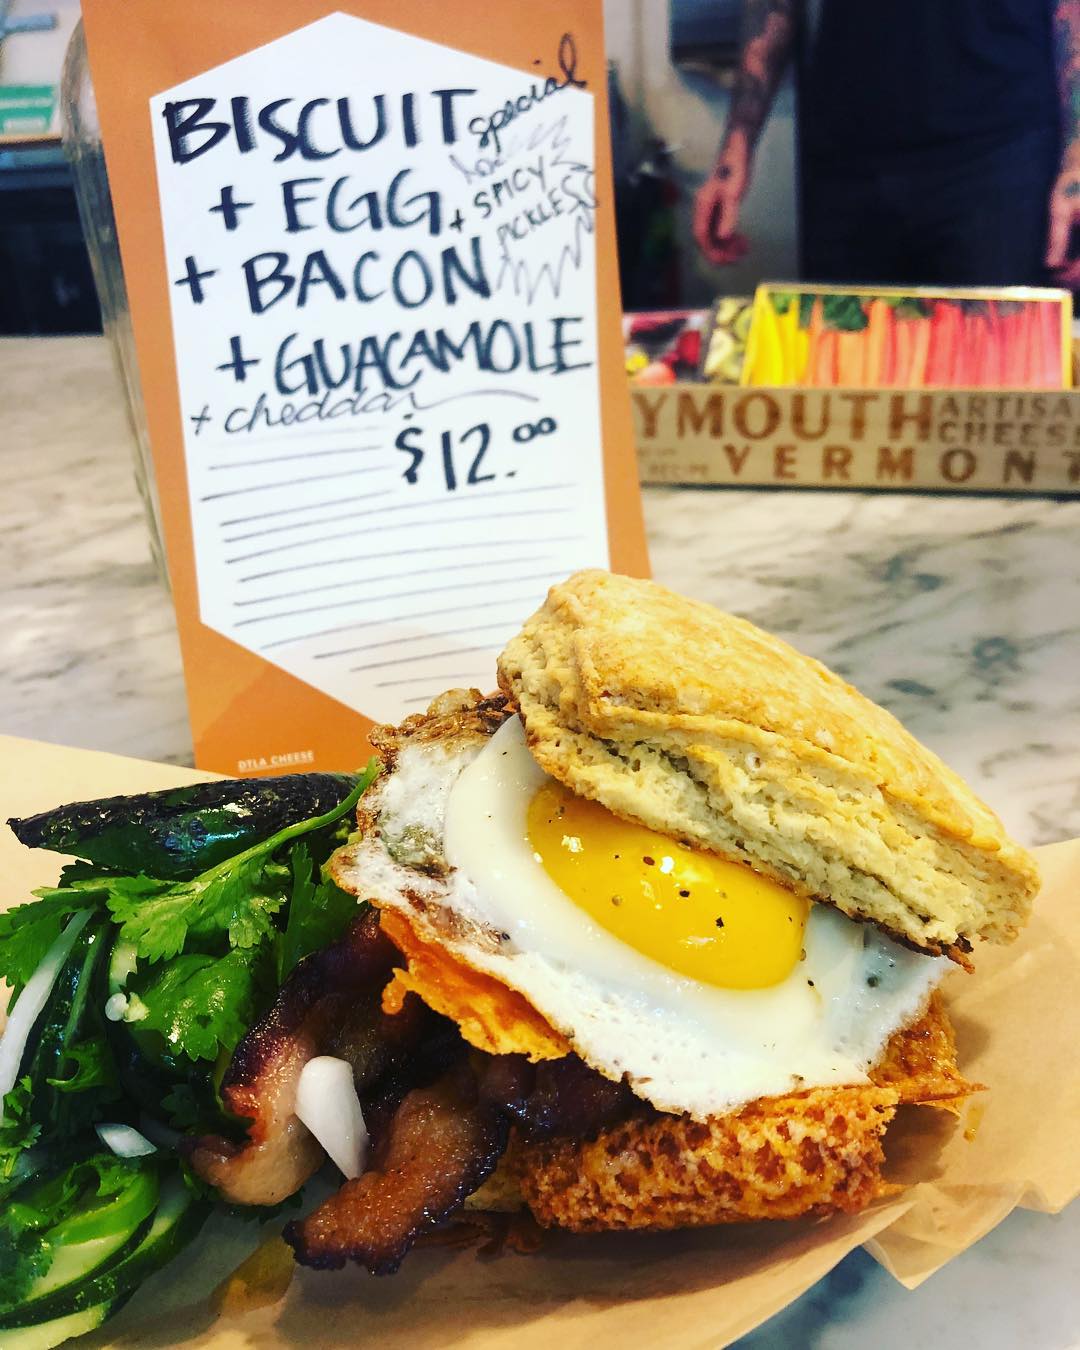 BISCUIT special
+ EGG + SPICY PICKLES
+ BACON
+ GUACAMOLE
+ cheddar
$12.00
DTLA CHEESE
YMOUTH ARTISA
CHEESE
RECIPE VERMONT